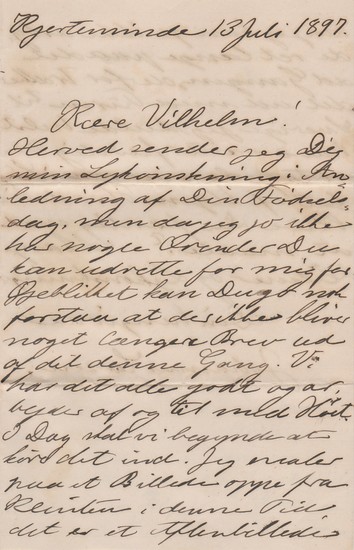 Kjerteminde 13 Juli 1897.
Kære Vilhelm!
Herved sender jeg Dig
min Lykønskning i An-
ledning af Din Fødsels-
dag, men da jeg jo ikke
har nogle Ærinder Du
kan udrette for mig for
Øjeblikket kan Du godt nok
forstaa at der ikke bliver
noget længere Brev ud
af det denne Gang. Vi
har det alle godt og ar-
bejder af og til med Høst.
I Dag skal vi begynde at
køre det ind. Jeg maler
paa et Billede oppe fra
Klinten i denne Tid
det er et Aftenbillede